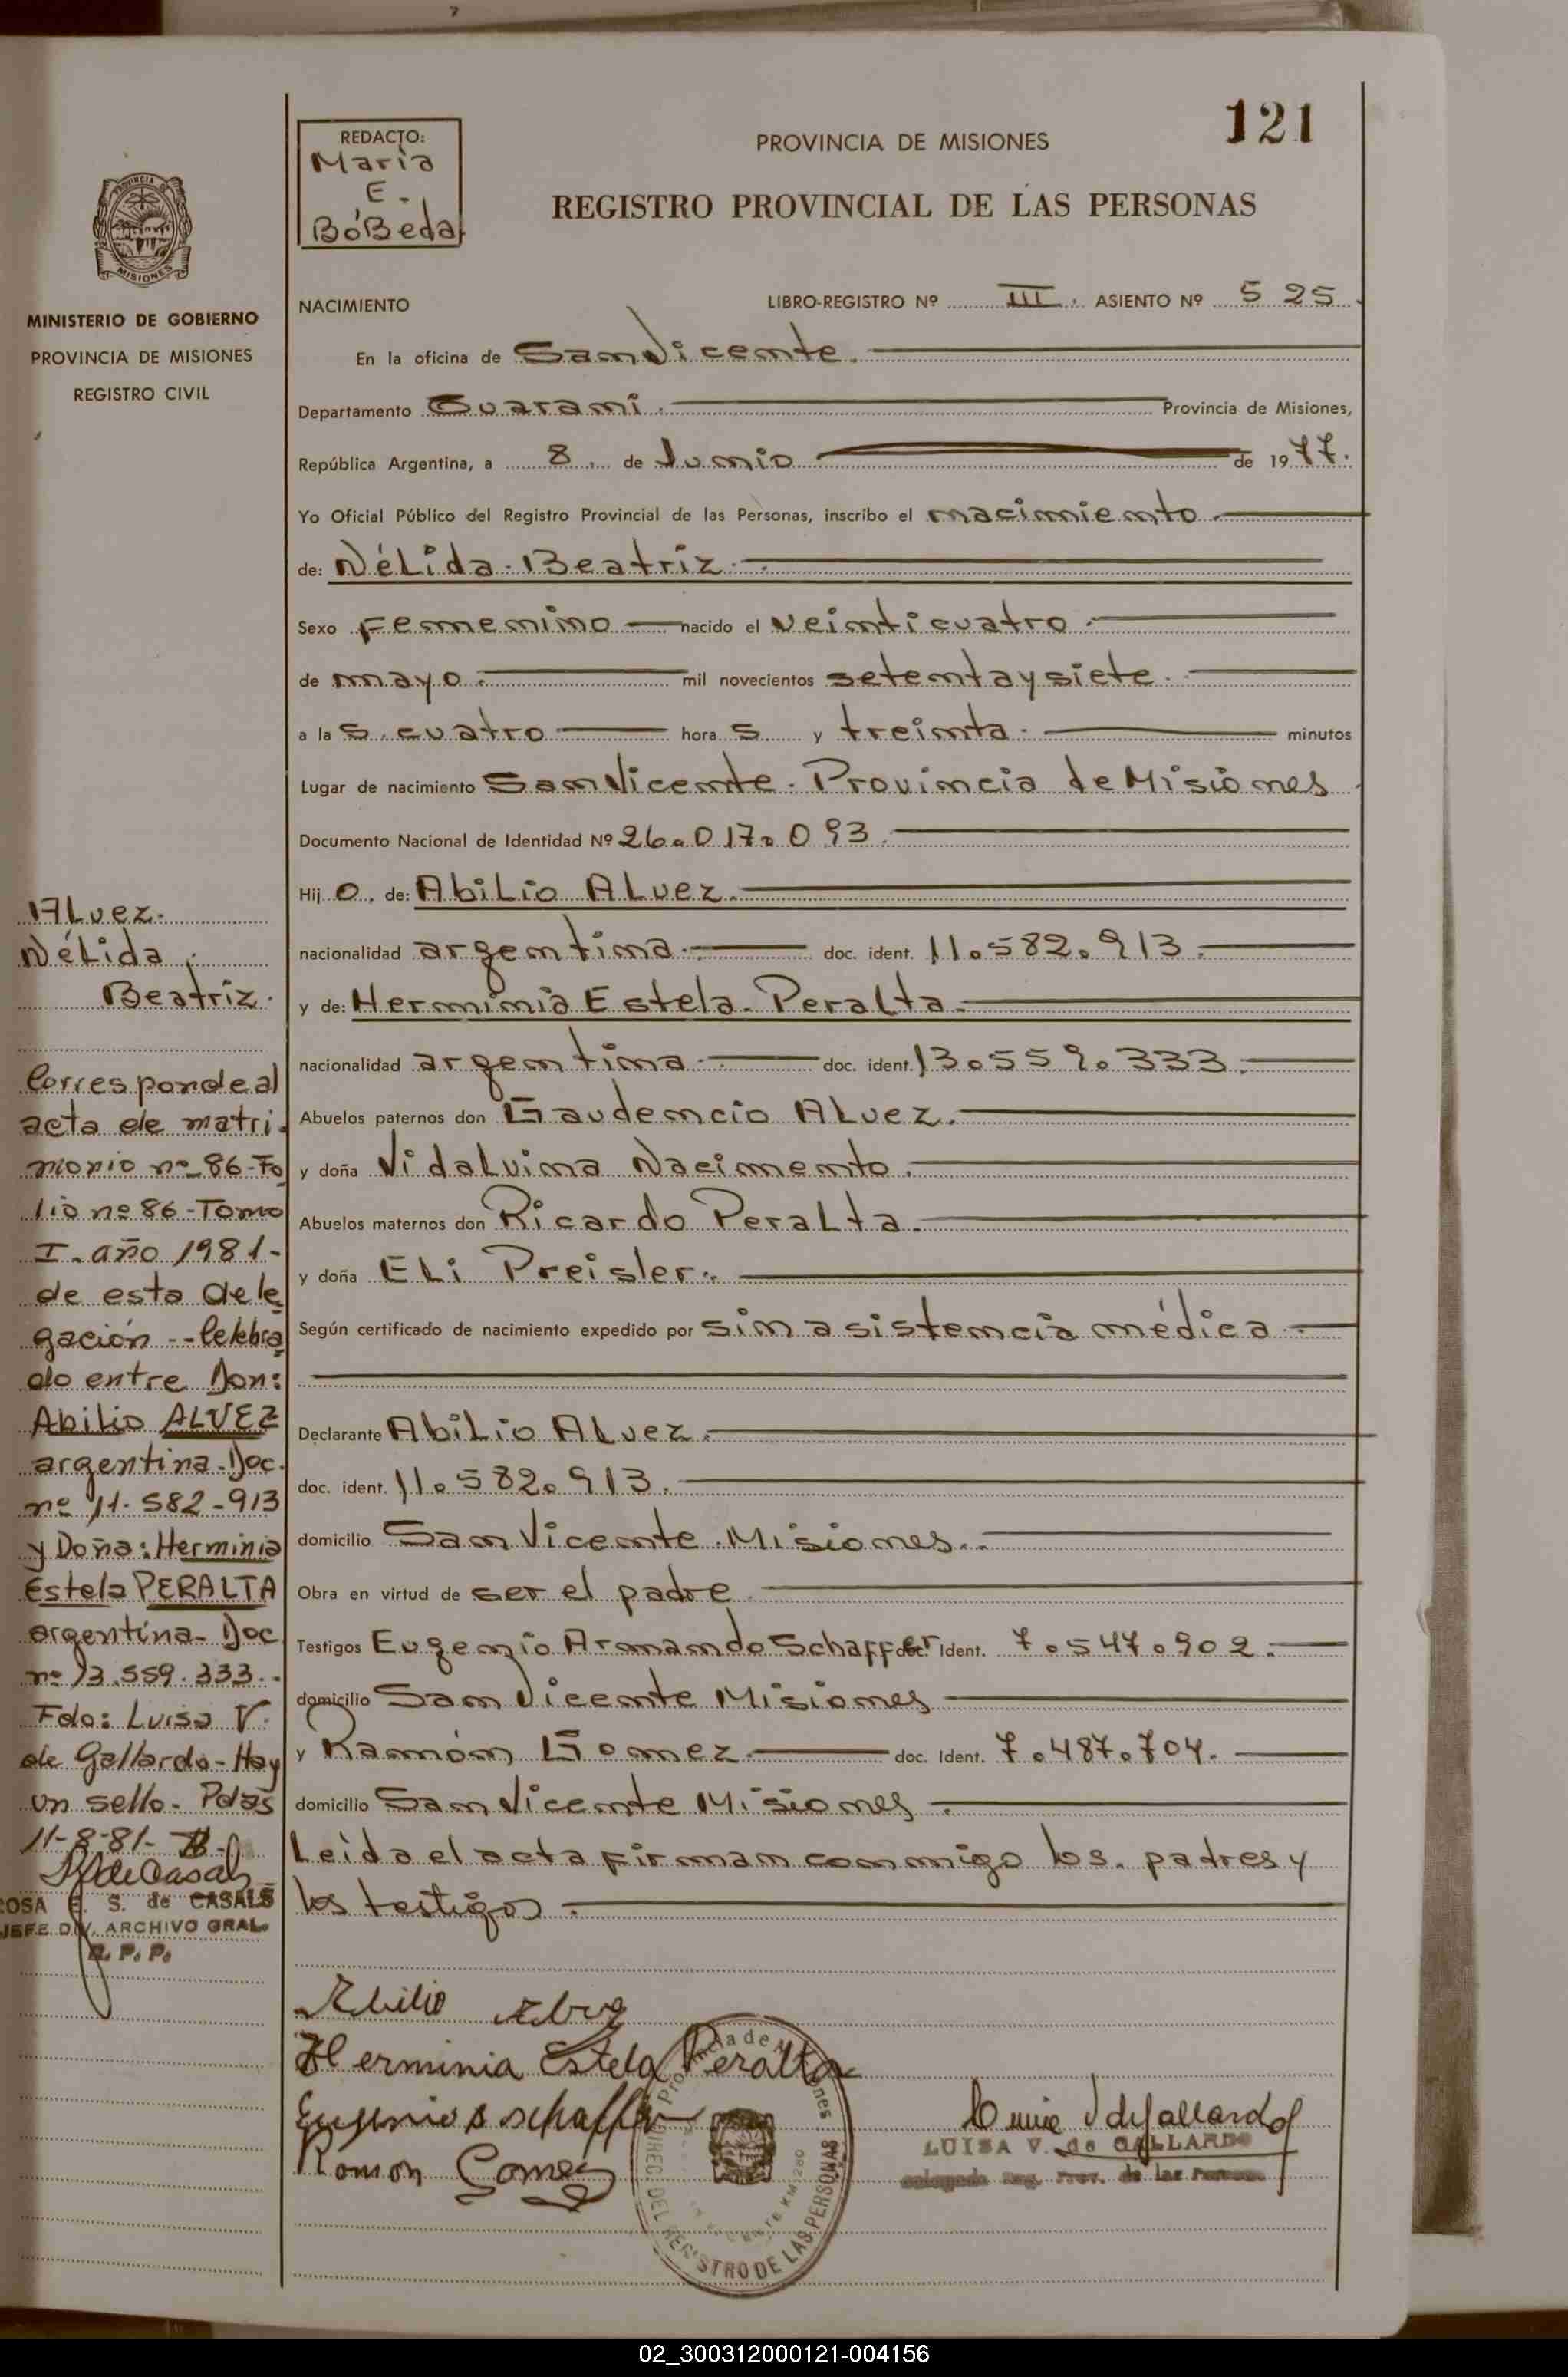 121
REDACTO:
Maria
E.
BóBeda
PROVINCIA DE MISIONES
REGISTRO PROVINCIAL DE LAS PERSONAS
PROVINCIA DE
MISIONES
MINISTERIO DE GOBIERNO
PROVINCIA DE MISIONES
REGISTRO CIVIL
NACIMIENTO LIBRO-REGISTRO Nº III. ASIENTO Nº 525
En la oficina de San Vicente.
Departamento Guarani. Provincia de Misiones,
República Argentina, a 8. de Junio de 1977.
Yo Oficial Público del Registro Provincial de las Personas, inscribo el nacimiento.
de: Nélida Beatriz.
Sexo Femenino nacido el veinticuatro.
de mayo. mil novecientos setentaysiete.
a las cuatro horas y treinta. minutos
Lugar de nacimiento San Vicente. Provincia de Misiones
Documento Nacional de Identidad Nº 26.017.093.
Hijo. de: Abilio Alvez.
nacionalidad argentina. doc. ident. 11.582.913.
y de: Herminia Estela Peralta.
nacionalidad argentina. doc. ident. 13.559.333.
Abuelos paternos don Gaudencio Alvez.
y doña Vidalvina Nacimento.
Abuelos maternos don Ricardo Peralta.
y doña Eli Preisler.
Según certificado de nacimiento expedido por sin asistencia médica.
Declarante Abilio Alvez.
doc. ident. 11.582.913.
domicilio San Vicente. Misiones.
Obra en virtud de ser el padre
Testigos Eugenio Armando Schaffer doc. Ident. 7.547.902.
domicilio San Vicente Misiones
y Ramón Gomez doc. Ident. 7.487.704.
domicilio San Vicente Misiones.
Leida el acta firman conmigo los padres y
los testigos.
Alvez.
Nélida
Beatriz.
Corresponde al
acta de matri-
monio nº 86-Fo
lio nº 86-Tomo
I. año 1981-
de esta Dele
gación -- Celebra
do entre Don:
Abilio ALVEZ
argentina-Doc.
nº 11-582-913
y Doña: Herminia
Estela PERALTA
argentina-Doc
nº 13.559.333.-
Fdo: Luisa V.
de Gallardo-Hay
un sello. Pdas
11-8-81-
ROSA E. S. de CASALS
JEFE DIV. ARCHIVO GRAL.
R. P. P.
Abilio Alvez
Herminia Estela Peralta
Eugenio A Schaffer
Ramon Gomez
Luisa V de Gallardo
LUISA V. de GALLARDO
Delegada Reg. Prov. de las Personas
Provincia de Misiones
DIREC. DEL REGISTRO DE LAS PERSONAS
02_300312000121-004156